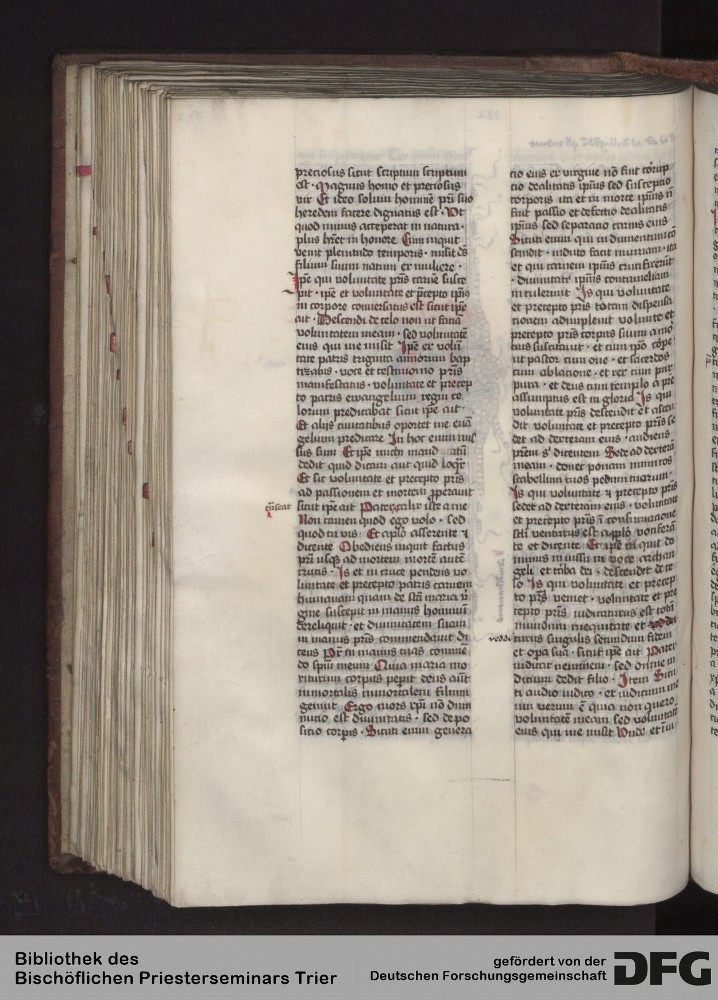 preciosus sicut scriptum scriptum
est · Magnus homo et preciosus
vir Et ideo solum hominem suo
heredem facere dignatus est · Vt
quod minus acceperat in natura ·
plus in honore Cum inquit
venit plenitudo temporis · misit
filium suum natum ex muliere ·
Ipse qui voluntate carnem susce
pit · ipse et voluntate et
in corpore conuersatus est sicut ipse
ait · Descendi de celo non ut faciam
voluntatem meam · sed voluntatem
eius qui me misit Ipse ex
tate patris triginta annorum bap
tizatus · voce et testimonio
manifestatus · voluntate et precep
to patris ewangelium regni ce
lorum predicabat sicut ipe ait ·
Et alijs ciuitatibus oportet me euan
gelium predicare In hoc enim mis
sus sum Et ipe michi
dedit quid dicam aut quid
Et sic voluntate et precepto
ad passionem et mortem
sicut ipe ait Pater calix iste a me
Non tamen quod ego volo · sed
quod tu vis · Et asserente et
dicente Obediens inquit factus
usque ad mortem autem
crucis · Is et in cruce pendens vo
luntate et precepto patris carnem
humanam quam de maria
gine suscepit in manus hominum
dereliquit · et diuinitatem suam
in manus commendauit di
cens in manus tuas commen
do meum Quia maria mo
riturum corpus peperit deus
inmortalis inmortalem filium
genuit Ergo mors non dimi
nucio est diuinitatis · sed depo
sitio corporis · Sicuti enim genera
cio eius ex virgine fuit corrup
tio deitatis ipsius sed susceptio
corporis ita et in morte ipsius
fuit passio et defectio deitatis
ipsius sed separacio carnis eius
Sicuti enim qui
scindit · induto facit iniuriam · ita
et qui carnem ipsius crucifixerunt
· diuinitati ipsius contumeliam
intulerunt Is qui voluntate
et precepto totam dispensa
tionem adimpleuit volunte et
precepto corpus suum a mor
tuis suscitauit · et cum
ut pastor cum oue · et sacerdos
cum oblacione · et rex cum pur
pura · et deus cum templo a
assumptus est in gloria Is qui
voluntate descendit et ascen
dit voluntate et precepto se
det ad dexteram eius · audiens
dicentem Sede ad
meam · donec ponam inimicos
scabellum tuorum ·
Is qui voluntate et precepto
sedet ad dexteram eius · voluntate
et precepto consumacione
venturus est
te et dicente Et ipe
minus in iussu in voce archan
geli et tuba dei · descendit de ce
lo Is qui voluntate et precep
to veniet · voluntate et pre
cepto iudicaturus est
mundum in equitate et
redditurus singulis secundum fidem
et opera sua · sicut ipe ait Pater
iudicat neminem · sed omne iu
dicium dedit filio · Item Sicu
ti audio iudico · et iudicium me
um verum quia non quero
voluntatem meam sed voluntatem
eius qui me misit Unde
Bibliothek des
Bischöflichen Priesterseminars Trier
gefördert von der
Deutschen Forschungsgemeinschaft
DFG